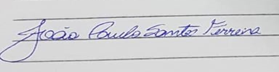 João Paulo Santos Ferreira